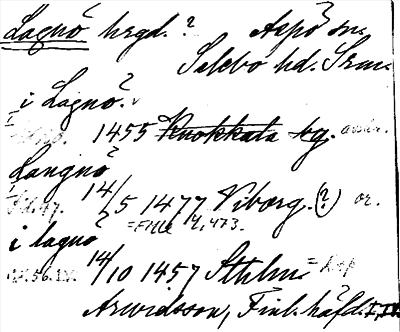 Lagnö hrgd.? Aspö sn.
Selebo hd. Srm.
i Lagnö.
1455 Kuokkala bg. avskr.
Langnö
14/5 1477 Viborg. (?) or.
= FMU 4,473.
i lagnö
14/10 1457 Sthlm
Arwidsson, Finl. häfd. I, IV.